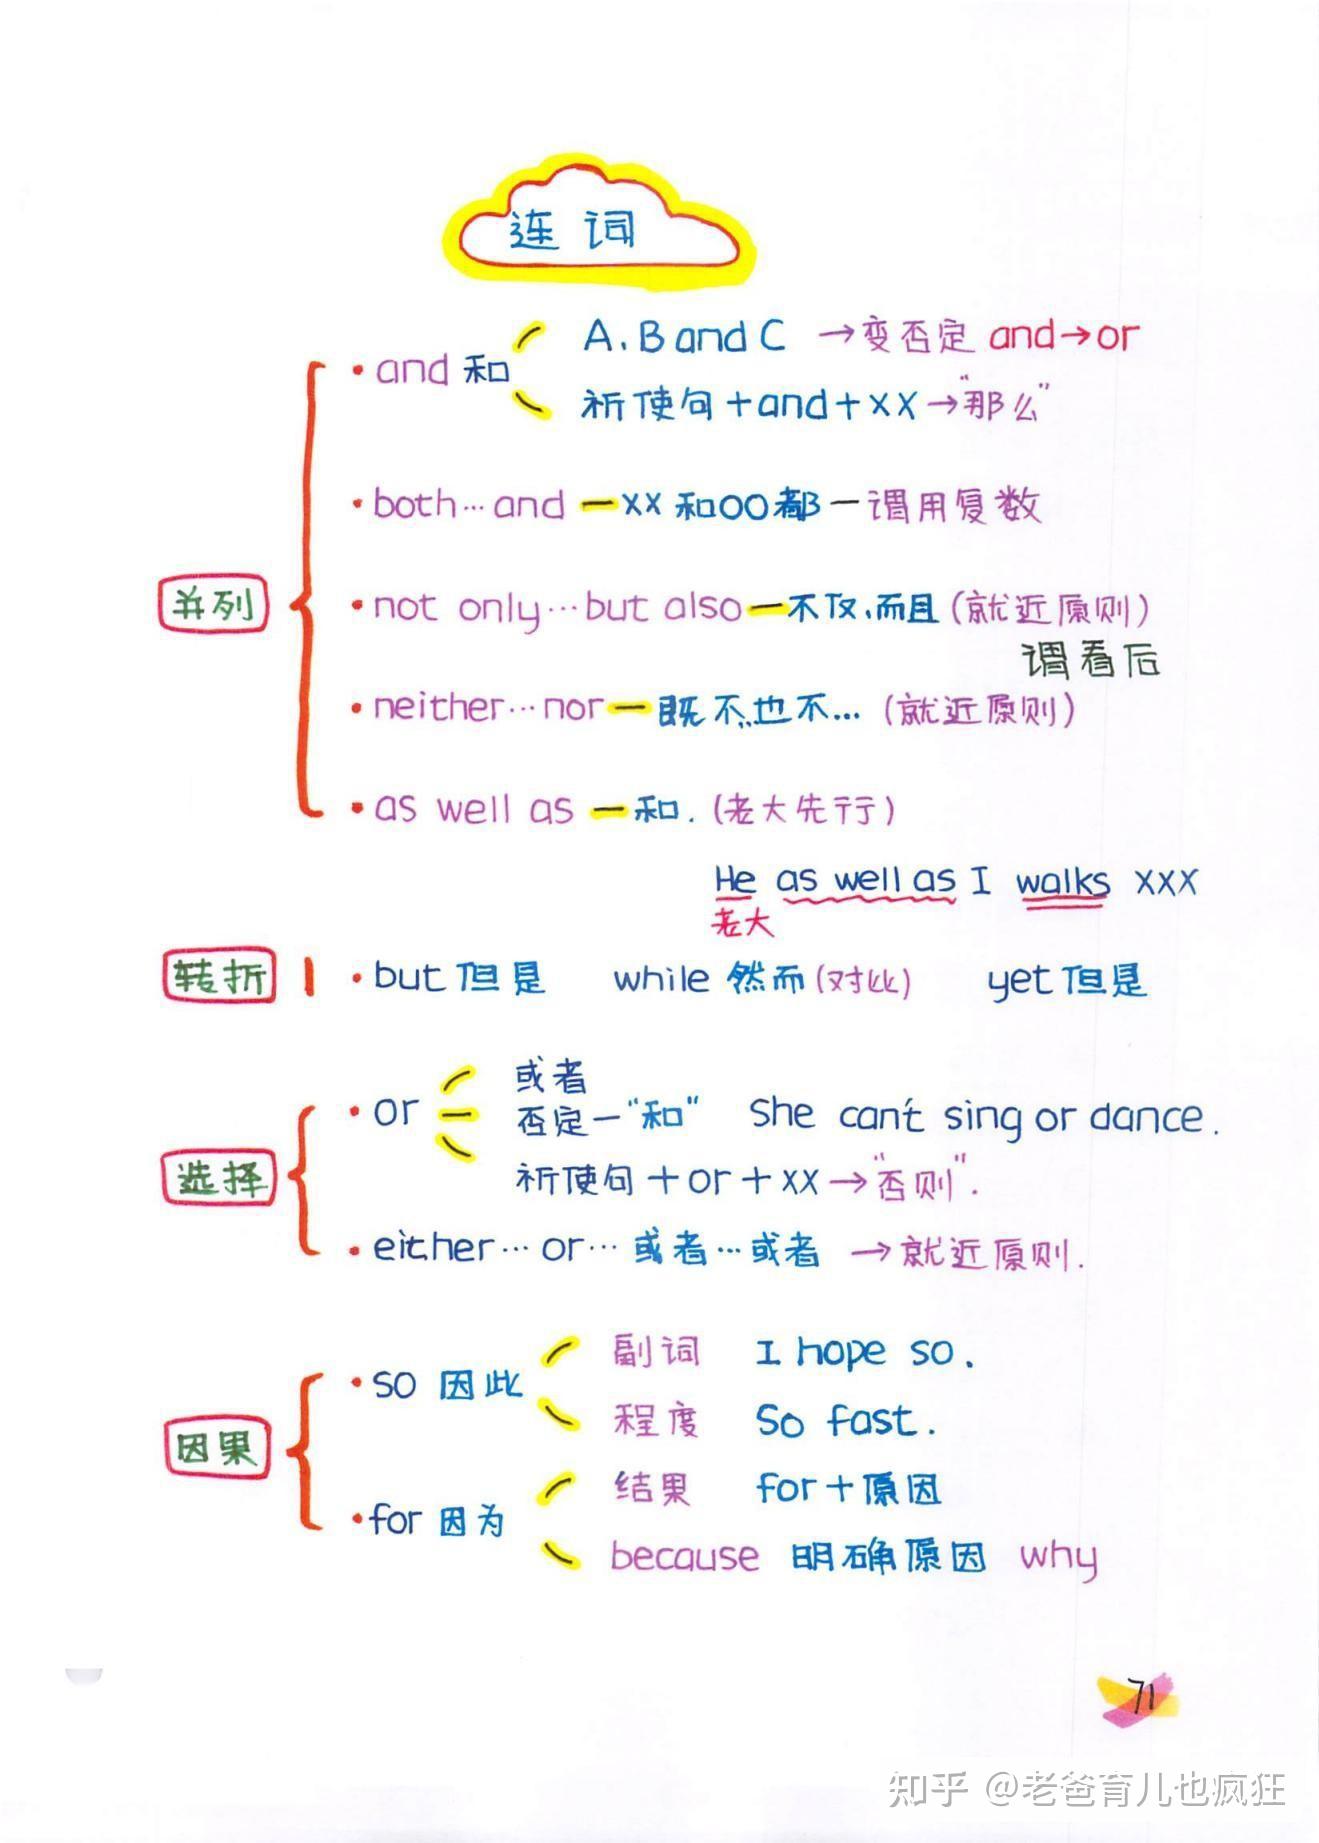 连词
A、B and C →变否定 and→or
·and 和
祈使句+and+XX→"那么"
·both…and—XX和OO都—谓用复数
并列
·not only…but also—不仅、而且(就近原则)
谓看后
·neither…nor—既不、也不…(就近原则)
·as well as—和.(老大先行)
He as well as I walks XXX
老大
转折
·but但是 while然而(对比) yet但是
或者
·or
否定—"和" She can't sing or dance.
选择
祈使句+or+XX→"否则".
·either…or…或者…或者→就近原则.
副词 I hope so.
·so 因此
程度 So fast.
因果
结果 for+原因
·for因为
because 明确原因 why
71
知乎 @老爸育儿也疯狂